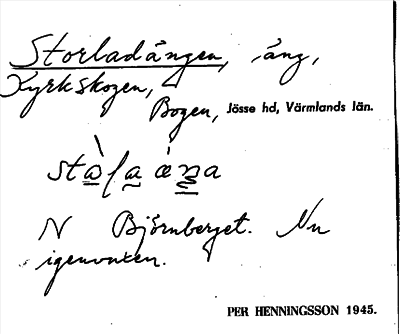 Storladängen, äng,
Kyrkskogen,
Bogen, Jösse hd, Värmlands län.
N Björnberget. Nu
igenvuxen.
PER HENNINGSSON 1945.